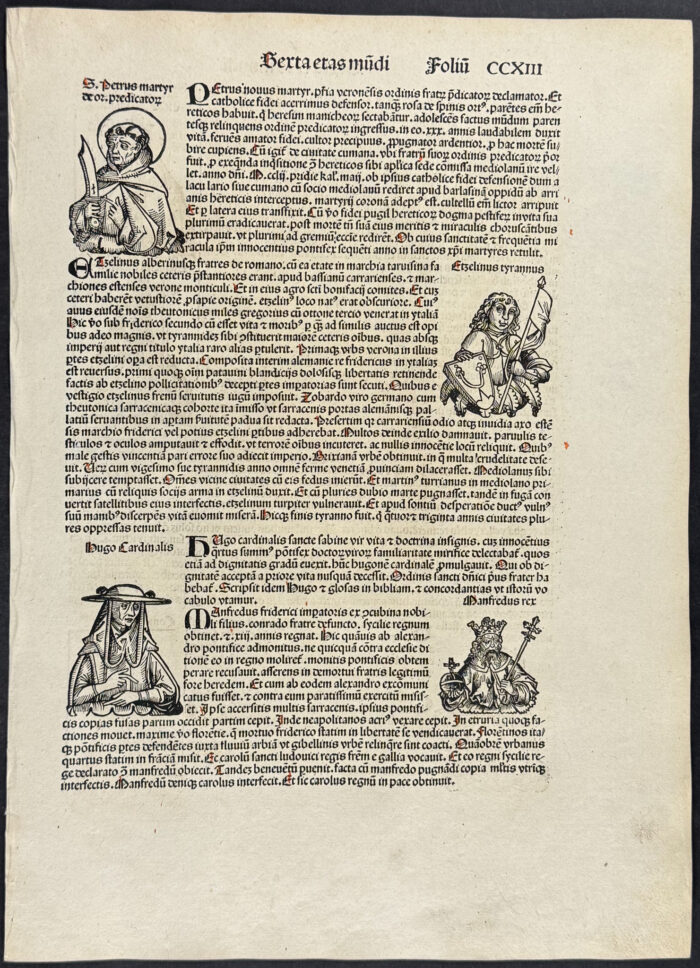 Sexta etas mũdi Foliũ CCXIII
S. Petrus martyr
de or. predicatoꝝ
PEtrus nouus martyr. pr̃ia veronẽsis ordinis fratꝝ p̃dicatoꝝ declamator. Et
catholice fidei acerrimus defensor. tanq̃ rosa de spinis ortꝰ. parẽtes em̃ he-
reticos habuit. q̃ heresim manicheoꝝ sectabãtur. adolescẽs factus mũdum paren
tesqꝫ relinquens ordinẽ predicatoꝝ ingressus. in eo .xxx. annis laudabilem duxit
vitã. feruẽs amator fidei. cultor precipuus. ꝓpugnator ardentior. ꝓ hac mortẽ su-
bire cupiens. Cũ igit̃ de ciuitate cumana. vbi fratrũ suoꝝ ordinis predicatoꝝ p̃or
fuit. ꝓ exẽnda inq̃sitione ↄ̃ hereticos sibi aplica sede cõmissa mediolanũ ire vel-
let. anno dñi. M.cclij. pridie kal̃. maij. ob ipsius catholice fidei defensionẽ dum a
lacu lario siue cumano cũ socio mediolanũ rediret apud barlasinã oppidũ ab arri
anis hereticis interceptus. martyrij coronã adeptꝰ est. cultellũ em̃ lictor arripuit
Et ꝑ latera eius transfixit. Cũ v̾o fidei pugil hereticoꝝ dogma pestifeꝝ inuita sua
plurimũ eradicauerat. post mortẽ tñ sua eius meritis ⁊ miraculis choruscãtibus
extirpauit. vt plurimi ad gremiũ eccl̃ie redirẽt. Ob cuius sanctitatẽ ⁊ freq̃ntia mi
racula ip̃m innocentius pontifex sequẽti anno in sanctos xp̃i martyres retulit.
ETzelinus alberinusqꝫ fratres de romano. cũ ea etate in marchia taruisina fa
milie nobiles ceteris p̃stantiores erant. apud bassianũ carrarienses. ⁊ mar-
chiones estenses verone monticuli. Et in eius agro scti bonifacij comites. Et cuꝫ
ceteri haberẽt vetustiorẽ ꝓsapie originẽ. etzelinꝰ loco natꝰ erat obscuriore. Cuiꝰ
auus eiusdẽ nois theutonicus miles gregorius cũ ottone tercio venerat in ytaliã
Hic v̾o sub friderico secundo cũ esset vita ⁊ moribꝰ ꝑ q̃ꝫ ad similis auctus est opi
bus adeo magnis. vt tyrannidẽ sibi ↄ̃stituerit maiorẽ ceteris oĩbus. quas absqꝫ
imperij aut regni titulo ytalia raro alias ꝑtulerit. Primaqꝫ vrbs verona in illius
ꝑtes etzelini oꝑa est reducta. Composita interim alemanie re fridericus in ytaliaꝫ
est reuersus. primi quoqꝫ oĩm patauini blandicijs dolosisqꝫ libertatis retinende
factis ab etzelino pollicitationibꝰ decepti ꝑtes impatorias sunt secuti. Quibus e
vestigio etzelinus frenũ seruitutis iugũ imposuit. Zobardo viro germano cum
theutonica sarracenicaqꝫ cohorte ita imisso vt sarracenis portas alemãnisqꝫ pal-
latiũ seruantibus in aptam s̃uitutẽ padua sit redacta. Presertim q̃ꝫ carrariensiũ odio atqꝫ inuidia axo estẽ
sis marchio friderici vel potius etzelini ꝑtibus adherebat. Multos deinde exilio damnauit. paruulis te-
sticulos ⁊ oculos amputauit ⁊ effodit. vt terrorẽ oĩbus incuteret. ac nullis innocẽtie locũ reliquit. Quibꝰ
male gestis vincentiã pari errore suo adiecit imperio. Brixianã vrbẽ obtinuit. in q̃ multa crudelitate dese-
uit. Uerꝫ cum vigesimo sue tyrannidis anno omnẽ ferme venetiã ꝓuinciam dilacerasset. Mediolanuꝫ sibi
subijcere temptasset. Omẽs vicine ciuitates cũ eis fedus inierũt. Et martinꝰ turrianus in mediolano pri-
marius cũ reliquis socijs arma in etzelinũ duxit. Et cũ pluries dubio marte pugnasset. tandẽ in fugã con
uertit satellitibus eius interfectis. etzelinum turpiter vulnerauit. Et apud sontiũ desperatiõe ductꝰ vulnꝰ
suũ manibꝰ discerpẽs vitã euomit miserã. Hicqꝫ finis tyranno fuit. q̃ q̃tuoꝛ ⁊ triginta annis ciuitates plu-
res oppressas tenuit.
Etzelinus tyrannus
Hugo Cardinalis
HUgo cardinalis sancte sabine vir vita ⁊ doctrina insignis. cuꝫ innocẽtius
q̃rtus summꝰ põtifex doctoꝝ viroꝝ familiaritate mirifice delectabat̃. quos
etiã ad dignitatis gradũ euexit. hũc hugonẽ cardinalẽ ꝓmulgauit. Qui ob di-
gnitatẽ acceptã a priore vita nusquã decessit. Ordinis sancti dñici pus frater ha
behat̃. Scripsit idem Hugo ⁊ glosas in bibliam. ⁊ concordantias vt istorũ vo
cabulo vtamur.
Manfredus rex
MAnfredus friderici impatoris ex ↄ̃cubina nobi-
li filius. conrado fratre defuncto. sycilie regnum
obtinet. ⁊ .xiij. annis regnat. Hic quãuis ab alexan-
dro pontifice admonitus. ne quicquã cõtra ecclesie di
tionẽ eo in regno molirer̃. monitis pontificis obtem
perare recusauit. asserens in demortui fratris legitimũ
fore heredem. Et cum ab eodem alexandro excõmuni
catus fuisset. ⁊ contra eum paratissimũ exercitũ misis-
set. Ipse accersitis multis sarracenis. ipsius pontifi-
cis copias fusas partim occidit partim cepit. Inde neapolitanos acriꝰ vexare cepit. In etruria quoqꝫ fa-
ctiones mouet. maxime v̾o florẽtie. q̃ mortuo friderico statim in libertatẽ se vendicauerat. Florẽtinos ita
qꝫ põtificis ꝑtes defendẽtes iuxta fluuiũ arbiã vt gibellinis vrbẽ relinq̃re sint coacti. Quãobrẽ vrbanus
quartus statim in frãciã misit. Ec carolũ sancti ludouici regis frẽm e gallia vocauit. Et eo regni sycilie re-
ge declarato ↄ̃ manfredũ obiecit. Tandeꝫ beneuẽtũ ꝑuenit. facta cũ manfredo pugnãdi copia ml̃tis vtriqꝫ
interfectis. Manfredũ deniqꝫ carolus interfecit. Et sic carolus regnũ in pace obtinuit.